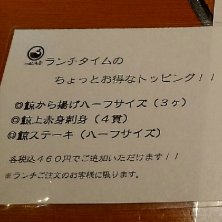 ランチタイムの
ちょっとお得なトッピング！！
◎鯨から揚げハーフサイズ（3ヶ）
◎鯨上赤身刺身（4貫）
◎鯨ステーキ（ハーフサイズ）
各税込460円でご追加いただけます！！
※ランチご注文のお客様に限ります。